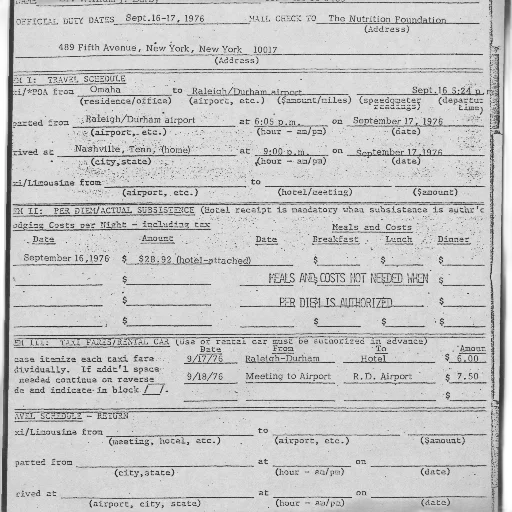 OFFICIAL DUTY DATES Sept.16-17, 1976 MAIL CHECK TO The Nutrition Foundation
(Address)
489 Fifth Avenue, New York, New York 10017
(Address)
EM I: TRAVEL SCHEDULE
xi/*POA from Omaha to Raleigh/Durham airport Sept.16 3:24 p.
(residence/office) (airport, etc.) ($amount/miles) (speedometer readings) (departur time)
parted from Raleigh/Durham airport at 6:05 p.m. on September 17, 1976
(airport, etc.) (hour - am/pm) (date)
rived at Nashville, Tenn. (home) at 9:00 p.m. on September 17,1976
(city,state) (hour - am/pm) (date)
xi/Limousine from to
(airport, etc.) (hotel/meeting) ($amount)
EM II: PER DIEM/ACTUAL SUBSISTENCE (Hotel receipt is mandatory when subsistance is auth'r'd
odging Costs per Night - including tax Meals and Costs
Date Amount Date Breakfast Lunch Dinner
September 16,1976 $ $28.92 (hotel-attached) $ $ $
$ MEALS AND COSTS NOT NEEDED WHEN $
$ PER DIEM IS AUTHORIZED $
$ $ $ $
EM III: TAXI FARES/RENTAL CAR (Use of rental car must be authorized in advance)
Date From To Amoun
ease itemize each taxi fare 9/17/76 Raleigh-Durham Hotel $ 6.00
dividually. If addt'l space 9/18/76 Meeting to Airport R.D. Airport $ 7.50
needed continue on reverse
de and indicate in block /_/. $
AVEL SCHEDULE - RETURN
xi/Limousine from to
(meeting, hotel, etc.) (airport, etc.) ($amount)
parted from at on
(city,state) (hour - am/pm) (date)
rived at at on
(airport, city, state) (hour - am/pm) (date)